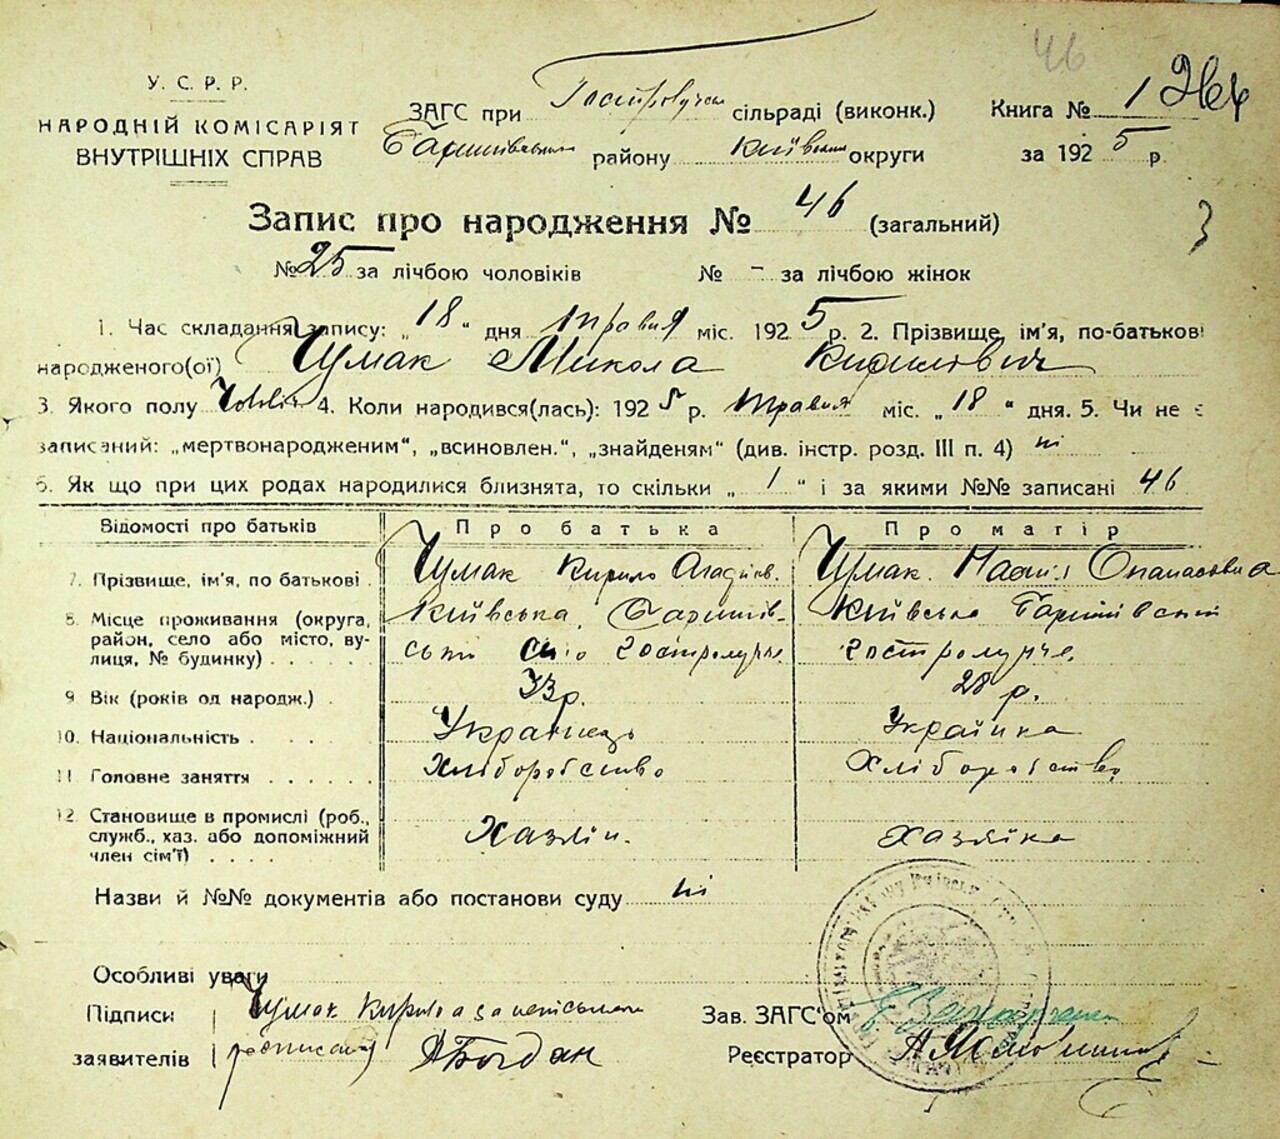 46
У. С. Р. Р.
НАРОДНІЙ КОМІСАРІЯТ
ВНУТРІШНІХ СПРАВ
ЗАГС при сільраді (виконк.)
Баришівському району Київської округи
Книга № 1
за 1925 р.
Запис про народження № 46 (загальний)
№ 25 за лічбою чоловіків № - за лічбою жінок
1. Час складання запису: „18" дня травня міс. 1925 р. 2. Прізвище, ім'я, по-батькові
народженого(ої) Чумак Микола Кирилович
3. Якого полу 4. Коли народився(лась): 1925 р. травня міс. „18" дня. 5. Чи не є
записаний: „мертвонародженим", „всиновлен.", „знайденям" (див. інстр. розд. III п. 4) ні
6. Як що при цих родах народилися близнята, то скільки „1" і за якими №№ записані 46
Відомості про батьків Про батька Про матір
7. Прізвище, ім'я, по батькові Чумак Кирило Чумак Опанасовна
8. Місце проживання (округа, район, село або місто, вулиця, № будинку) Київська, Баришів-
ський село Гостролучче
Київська Баришівський
Гостролучче
9 Вік (років од народж.) 33 р. 28 р.
10. Національність Українець Українка
11 Головне заняття Хліборобство Хліборобство
12. Становище в промислі (роб., служб., хаз. або допоміжний член сім'ї) Хазяїн. Хазяйка
Назви й №№ документів або постанови суду ні
Особливі уваги
Підписи заявителів Чумак Кирило а за неписьмен
росписався Богдан
Зав. ЗАГС'ом
Реєстратор